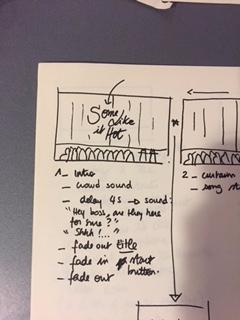 Some
like
it Hot
1_ Intro
_ crowd sound
_ delay 4s → sound:
"Hey boss, are they here
for sure?"
"Shhh!..."
_ fade out title
_ fade in start
button.
_ fade out
2_ curtain
_ song st